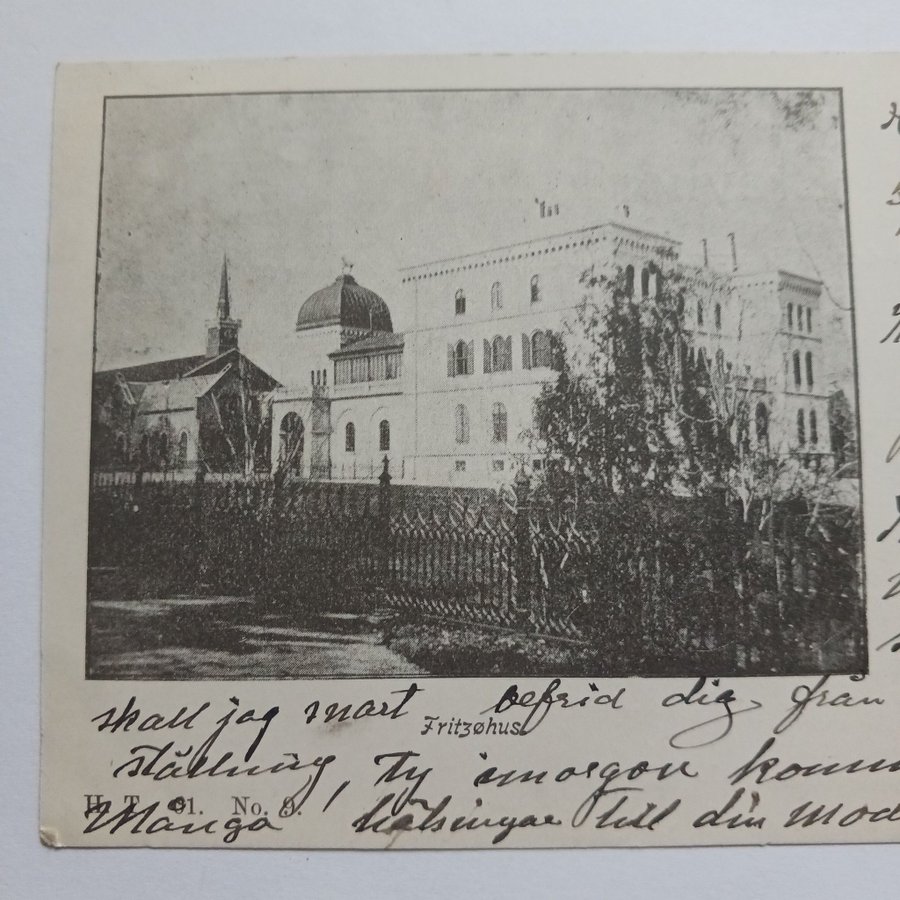 skall jag snart befrid dig från
Fritzøhus.
ställning, Ty imorgon komm
H. T. 91. No. 9.
Många hälsingar till din Mod